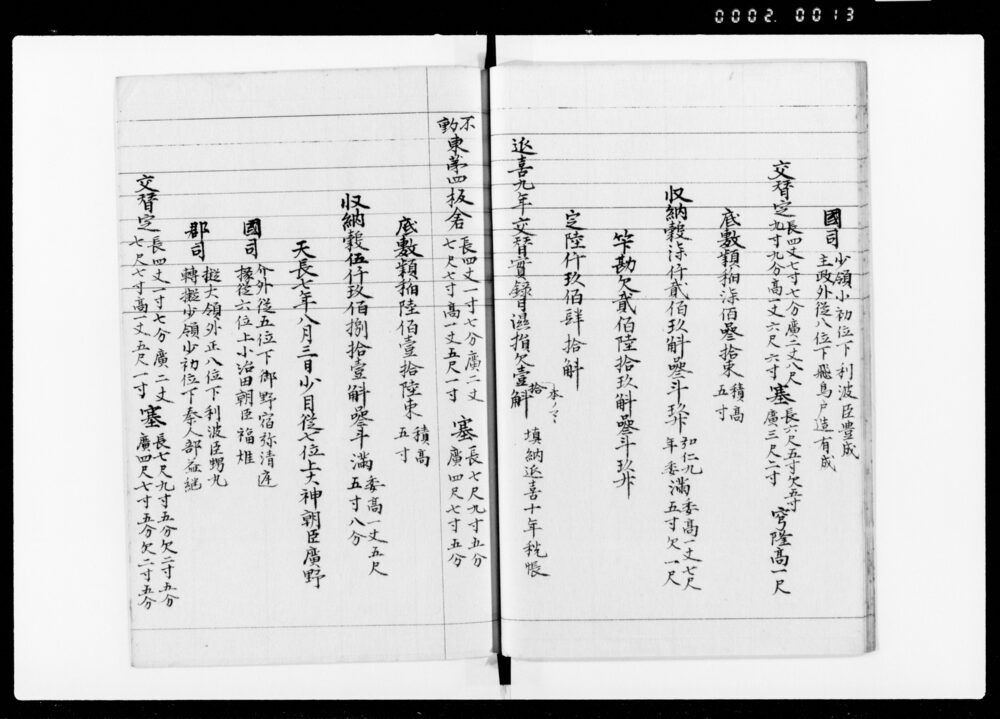 0002.0013
國司 少領小初位下利波臣豊成
主政外従八位下飛鳥戸造有成
交替定 長四丈七寸七分廣二丈八尺
九寸九分高一丈六尺六寸 塞 長六尺五寸欠五寸
廣三尺二寸 穹隆高一尺
底敷穎稲柒佰叄拾束 積高
五寸
収納穀柒仟貳佰玖斛叄斗玖升 弘仁九
年委 滿 委高一丈七尺
五寸欠一尺
竿勘欠貳佰陸拾玖斛叄斗玖升
定陸仟玖佰肆拾斛
延喜九年交替實録曰滋損欠壹斛 拾 本ノマヽ 填納延喜十年税帳
不動 東第四板倉 長四丈一寸七分廣二丈
七尺七寸高一丈五尺一寸 塞 長七尺九寸五分
廣四尺七寸五分
底敷穎稲陸佰壹拾陸束 積高
五寸
収納穀伍仟玖佰捌拾壹斛叄斗 滿 委高一丈五尺
五寸八分
天長七年八月三日少目従七位上大神朝臣廣野
國司 介外従五位下御野宿祢清庭
掾従六位上小治田朝臣福雄
郡司 擬大領外正八位下利波臣甥丸
轉擬少領少初位下秦人部益継
交替定 長四丈一寸七分廣二丈
七尺七寸高一丈五尺一寸 塞 長七尺九寸五分欠二寸五分
廣四尺七寸五分欠二寸五分